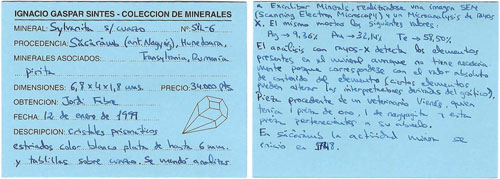 IGNACIO GASPAR SINTES - COLECCION DE MINERALES
MINERAL: Sylvanita s/ cuarzo Nº: SUL-6
PROCEDENCIA: Săcărâmb (ant. Nagyág), Hunedoara,
MINERALES ASOCIADOS: Transylvania, Rumania
pirita
DIMENSIONES: 6,8 x 4 x 1,8 cms. PRECIO: 34.000 Pts
OBTENCION: Jordi Fabre
FECHA: 12 de enero de 1999
DESCRIPCION: cristales prismáticos
estriados color blanco plata de hasta 6 mm.
y tablillas sobre cuarzo. Se mandó analizar
a Excalibur Minerals, realizándose una imagen SEM
(Scanning Electron Microscopy) y un Microanálisis de Rayos
X. El mismo mostró los siguientes valores:
Ag → 9,36% Au → 32,14% Te → 58,50%
El análisis con rayos-X detecta los elementos
presentes en el mineral aunque no tiene necesaria
mente porque corresponderse con el valor absoluto
de contenido del elemento (ciertos elementos
pueden alterar las interpretaciones derivadas del gráfico).
Pieza procedente de un veterinario Vienés, quien
tenía 1 pieza de oro, 1 de nagyagita y esta
pieza pertenecientes a su abuelo.
En Săcărâmb la actividad minera se
inició en 1748.